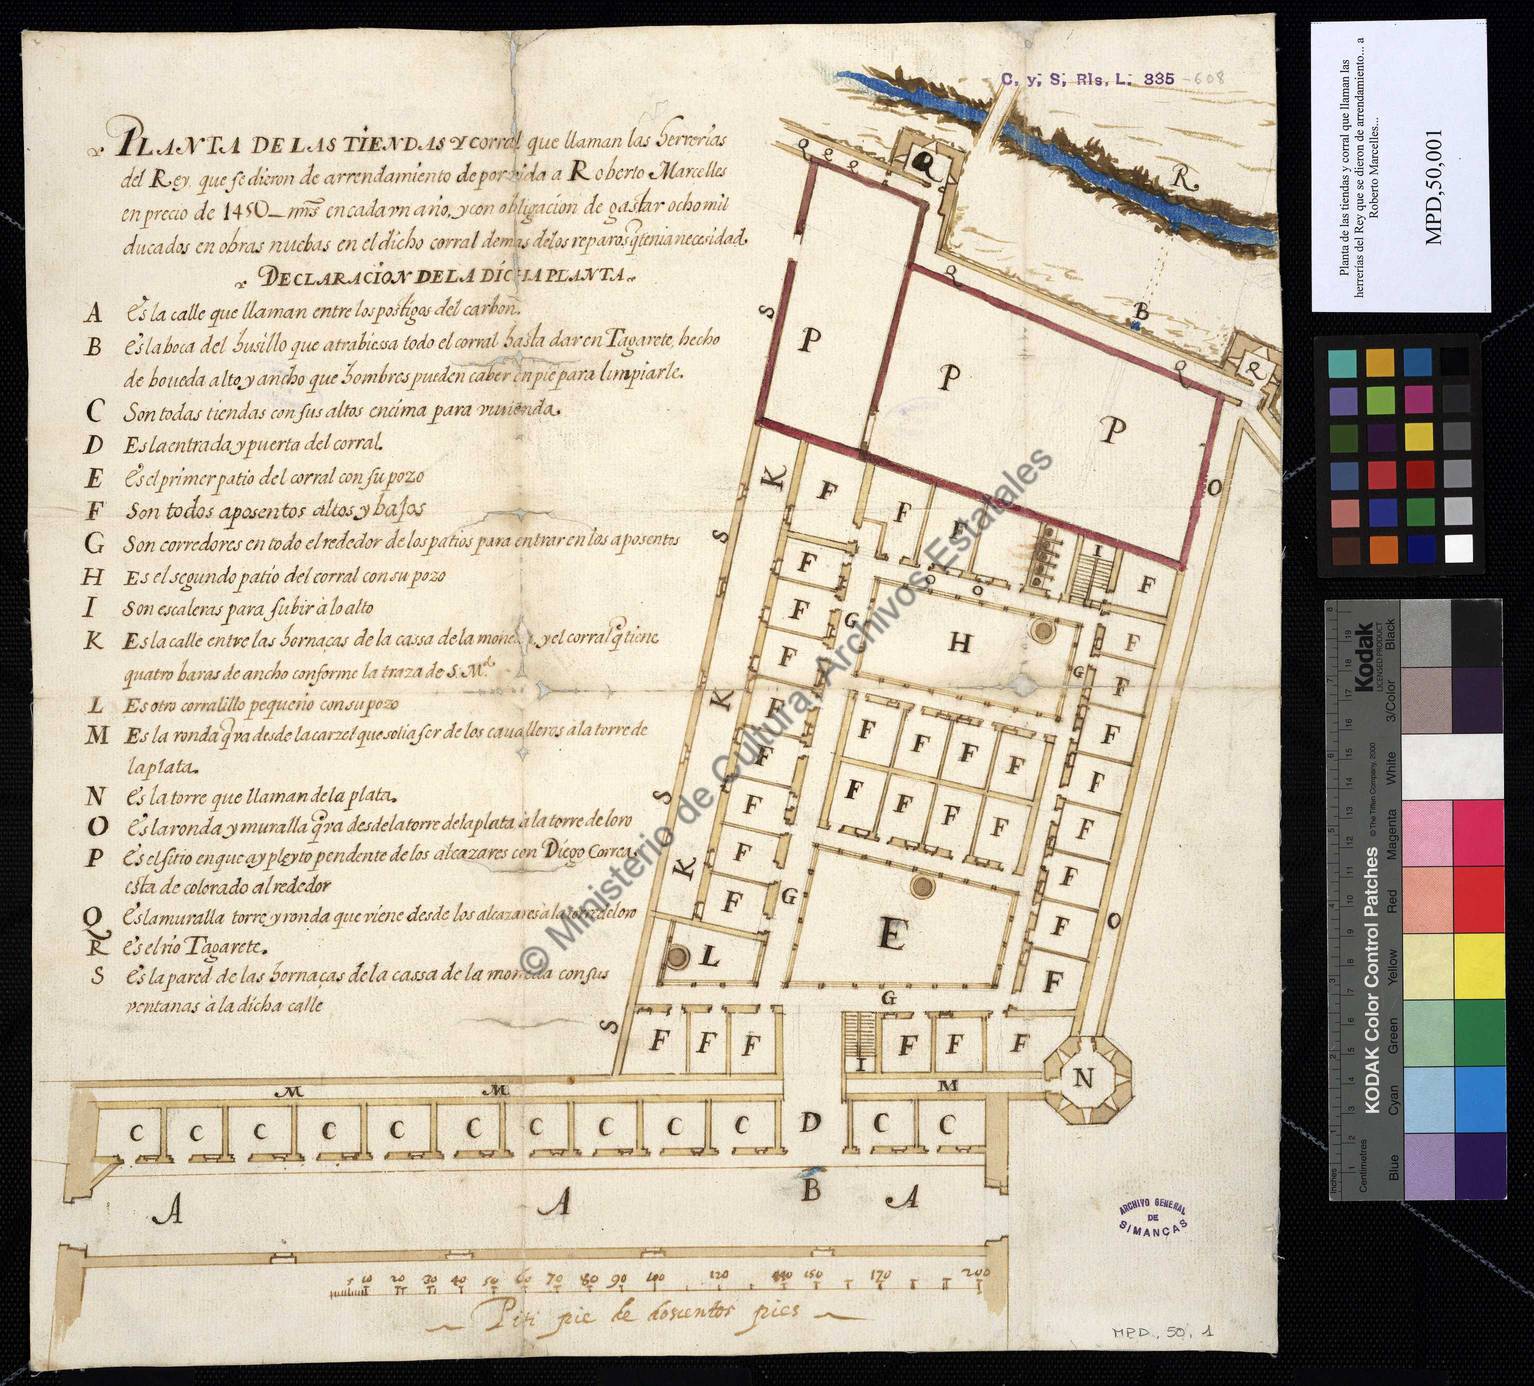 PLANTA DE LAS TIENDAS Y corral que llaman las herrerias
del Rey. que se dieron de arrendamiento de por vida a Roberto Marcelles
en precio de 1450_ mrs en cada vn año, y con obligacion de gastar ocho mil
ducados en obras nuebas en el dicho corral demas de los reparos q tenia necesidad.
DECLARACION DE LA DÍCHA PLANTA.
A Es la calle que llaman entre los postigos del carbon.
B Es la boca del husillo que atrabiessa todo el corral hasta dar en Tagarete, hecho
de boueda alto, y ancho que hombres pueden caber en pie para limpiarle.
C Son todas tiendas con sus altos encima para viuienda.
D Es la entrada y puerta del corral.
E Es el primer patio del corral con su pozo
F Son todos aposentos altos y bajos
G Son corredores en todo el rededor de los patios para entrar en los aposentos
H Es el segundo patio del corral con su pozo
I Son escaleras para subir à lo alto
K Es la calle entre las hornaças de la cassa de la moneda, y el corral q tiene
quatro baras de ancho conforme la traza de S. Md.
L Es otro corralillo pequeño con su pozo
M Es la ronda q va desde la carzel que solia ser de los caualleros à la torre de
la plata.
N Es la torre que llaman de la plata.
O Es la ronda, y muralla q va desde la torre de la plata, à la torre del oro
P Es el sitio en que ay pleyto pendente de los alcazares con Diego Correa,
esta de colorado al rededor
Q Es la muralla torre, y ronda que viene desde los alcazares à la torre del oro
R Es el rio Tagarete.
S Es la pared de las hornaças de la cassa de la moneda con sus
ventanas à la dicha calle
C. y; S; Rls, L. 335 -608
Q Q Q Q
R
Q
B
S P
P
Q Q
P
K O
F
F F
S
F I F
O
F O
G H F
F G
F F
K F
F F F F F
F F
F F F F F
S F
F F
K F G E F O
L F
G
S F F F F F F
I N
M M M
C C C C C C C C C C D C C
B
A A A
5 10 20 30 40 50 60 70 80 90 100 120 140 150 170 200
Piti pie de doscientos pies
ARCHIVO GENERAL
DE
SIMANCAS
MPD, 50, 1
© Ministerio de Cultura. Archivos Estatales
Planta de las tiendas y corral que llaman las
herrerías del Rey que se dieron de arrendamiento... a
Roberto Marcelles...
MPD,50,001
Kodak
LICENSED PRODUCT
KODAK Color Control Patches
© The Tiffen Company, 2000
Black
3/Color
White
Magenta
Red
Yellow
Green
Cyan
Blue
Inches
Centimetres